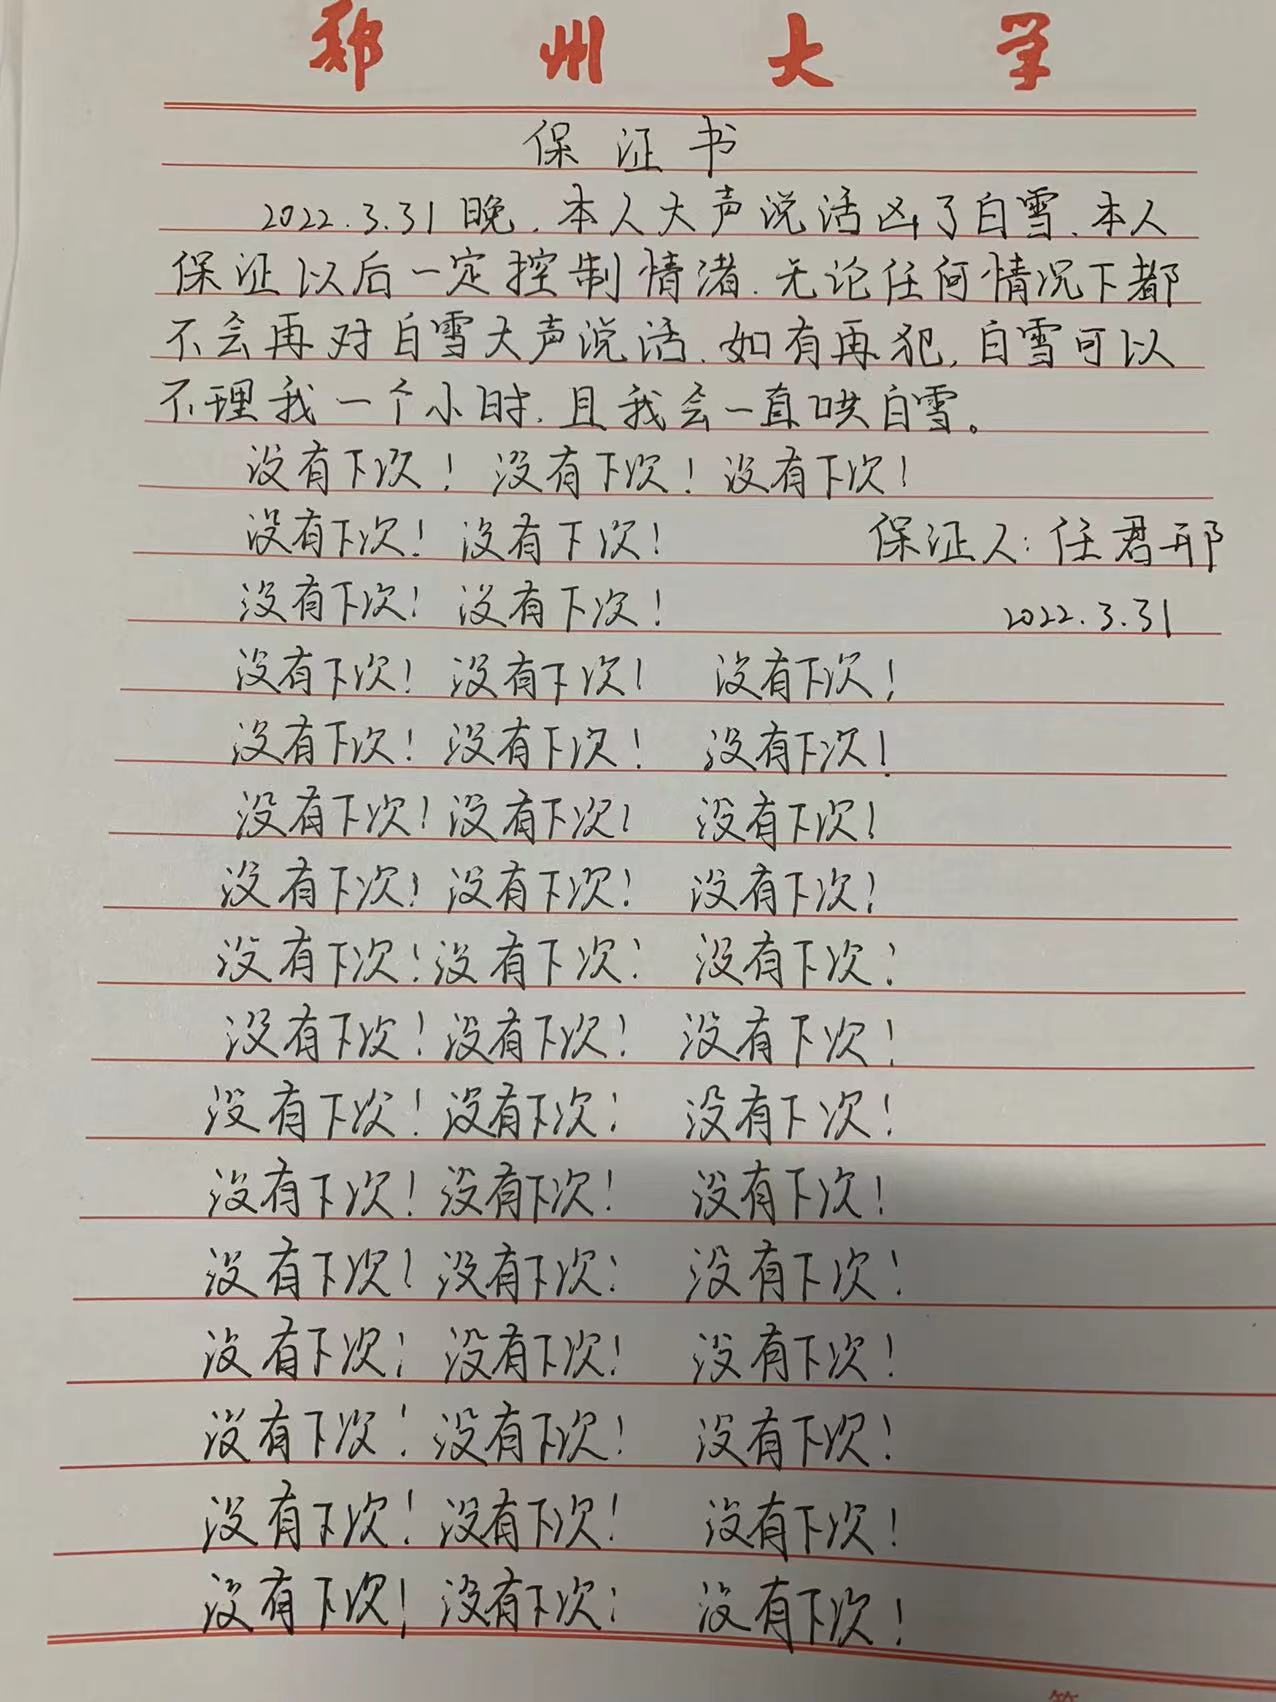 郑州大学
保证书
2022.3.31晚,本人大声说话凶了白雪,本人
保证以后一定控制情绪,无论任何情况下都
不会再对白雪大声说话,如有再犯,白雪可以
不理我一个小时,且我会一直哄白雪。
没有下次!没有下次!没有下次!
没有下次!没有下次! 保证人:任君邢
没有下次!没有下次! 2022.3.31
没有下次!没有下次! 没有下次!
没有下次!没有下次! 没有下次!
没有下次!没有下次! 没有下次!
没有下次!没有下次! 没有下次!
没有下次!没有下次! 没有下次!
没有下次!没有下次! 没有下次!
没有下次!没有下次! 没有下次!
没有下次!没有下次! 没有下次!
没有下次!没有下次! 没有下次!
没有下次!没有下次! 没有下次!
没有下次!没有下次! 没有下次!
没有下次!没有下次! 没有下次!
没有下次!没有下次! 没有下次!